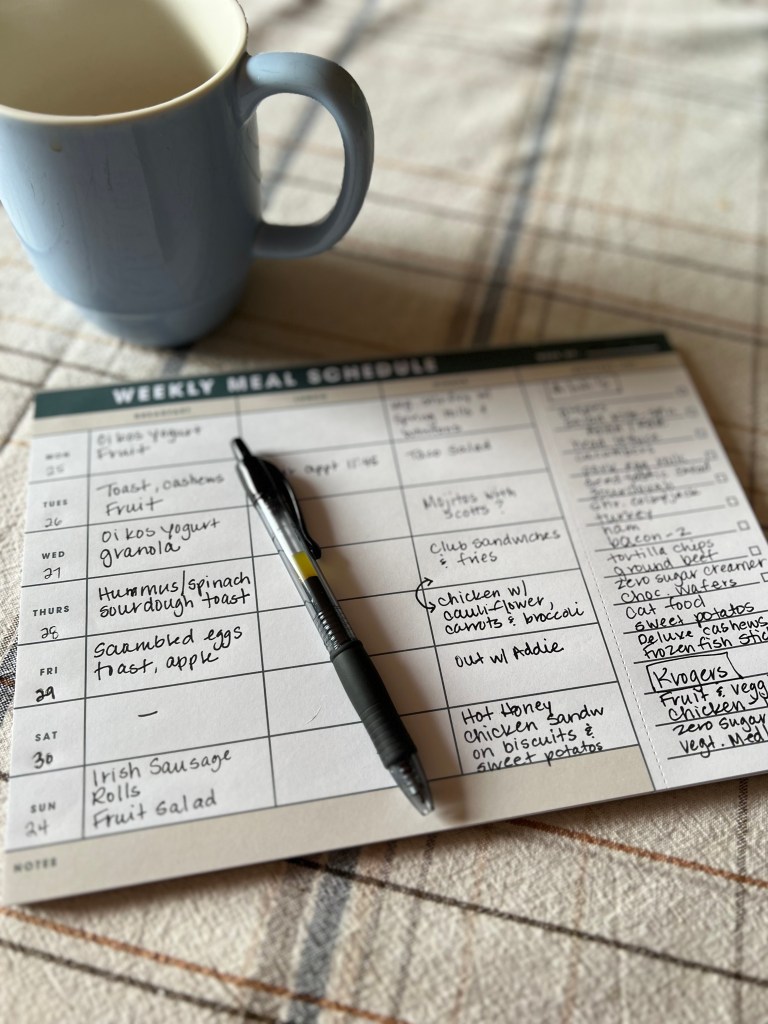 WEEKLY MEAL SCHEDULE
BREAKFAST
MON
25
Oikos Yogurt
Fruit
Spring Rolls &
TUES
26
Toast, cashews
Fruit
appt 11:45
Taco Salad
WED
27
Oikos yogurt
granola
Mojitos with
Scotts?
THURS
28
Hummus/spinach
sourdough toast
Club sandwiches
& fries
FRI
29
Scrambled eggs
toast, apple
chicken w/
cauliflower,
carrots & broccoli
SAT
30
—
out w/ Addie
SUN
24
Irish Sausage
Rolls
Fruit Salad
Hot Honey
chicken sandw
on biscuits &
sweet potatos
NOTES
turkey
ham
bacon-2
tortilla chips
ground beef
zero sugar creamer
choc. wafers
cat food
sweet potatos
Deluxe cashews,
frozen fish stic
Krogers
Fruit & vegg
chicken
zero sugar
vegt. Med